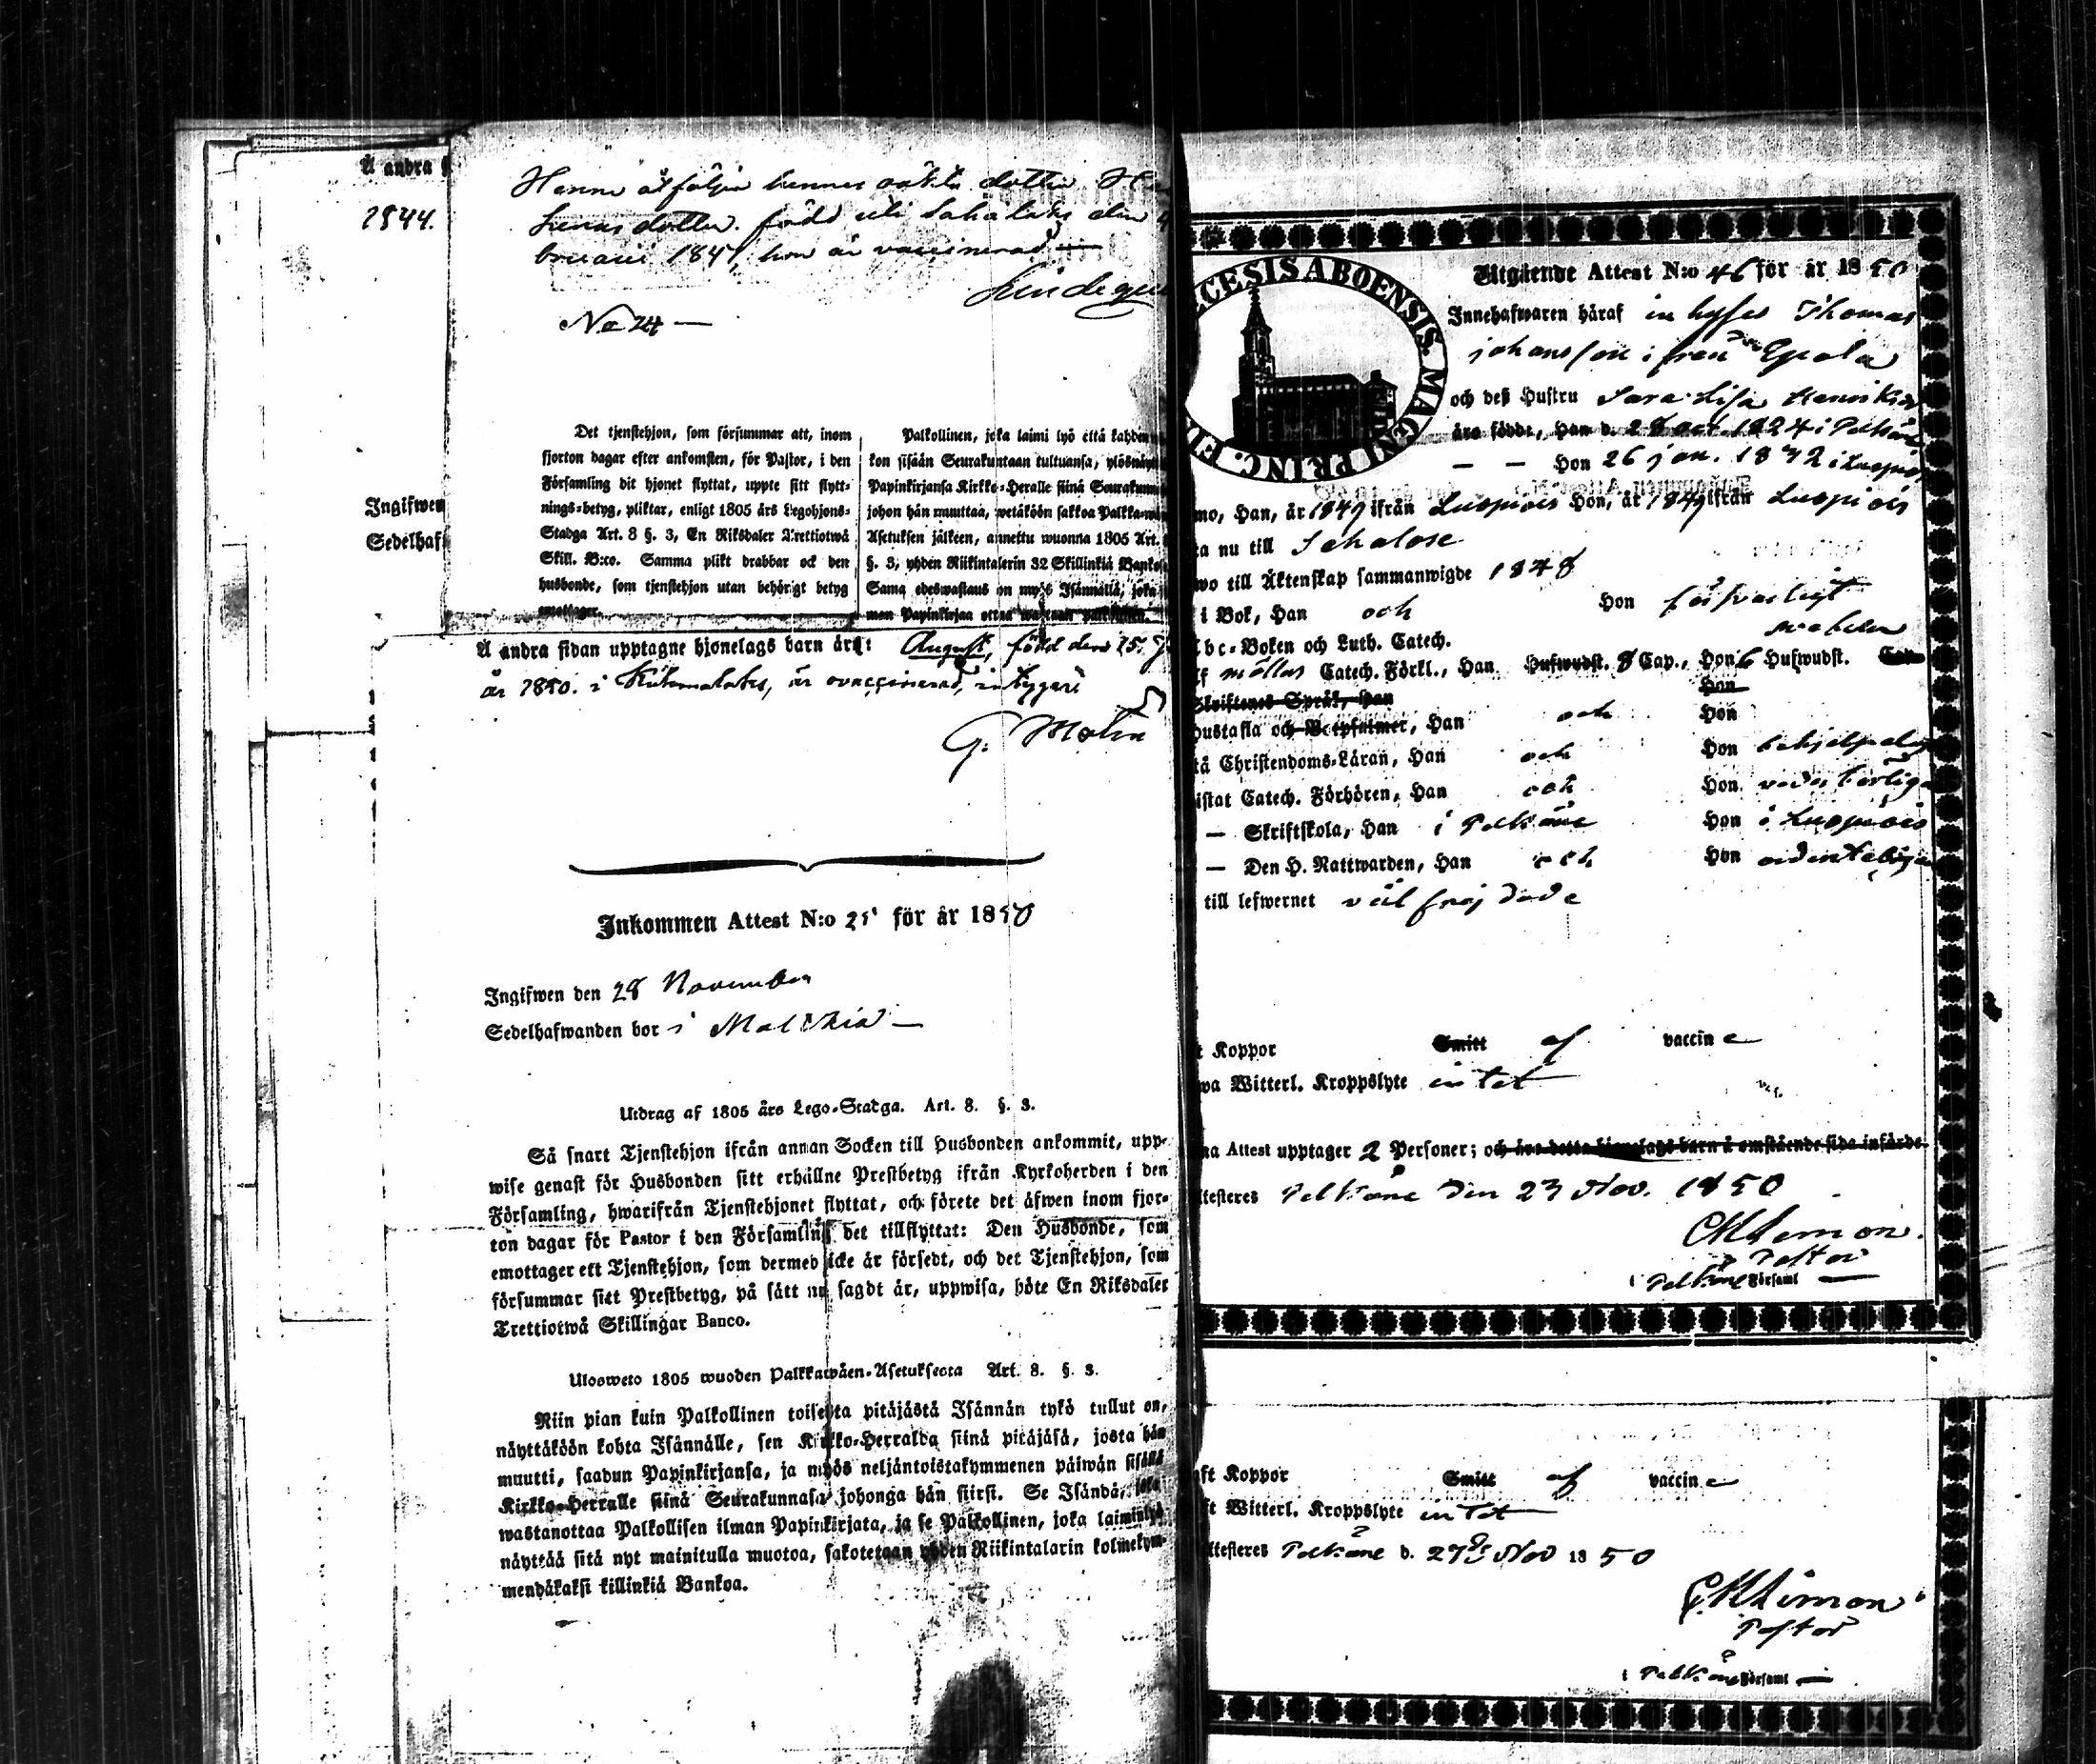 Å andra
1844.
Ingifwen
Sedelhaf
Henne åtföljer hennes oäkta dotter
dotter född uti Sahalaks den
bruarii 1847, hon är vaccinerad
No 24 —
Det tjenstehjon, som försummar att, inom
fjorton dagar efter ankomsten, för Pastor, i den
Församling dit hjonet flyttat, uppte sitt flytt-
nings-betyg, pliktar, enligt 1805 års Legohjons-
Stadga Art. 8 §. 3, En Riksdaler Trettiotwå
Skill. B:co. Samma plikt drabbar ock den
husbonde, som tjenstehjon utan behörigt betyg
emottager.
Palkollinen, joka laimi lyö että kahden
kon sisään Seurakuntaan tultuansa, ylösnäyt
Papinkirjansa Kirkko-Herralle siinä Seurakunn
johon hän muuttaa, wetäköön sakkoa Palkka-wä
Asetuksen jälkeen, annettu wuonna 1805 Art.
§. 3, yhden Riikintalerin 32 Skillinkiä Banko
Sama edeswastaus on myös Isännällä, joka
man Papinkirjaa ottaa wastaan palkollisen.
Å andra sidan upptagne hjonelags barn äro: August, född den 25
år 1850. i Kuhmalahti, är ovaccinerad, intygar
G. Molin
Inkommen Attest N:o 25 för år 1850
Ingifwen den 28 November
Sedelhafwanden bor i Malckia —
Utdrag af 1805 års Lego-Stadga. Art. 8. §. 3.
Så snart Tjenstehjon ifrån annan Socken till Husbonden ankommit, upp-
wise genast för Husbonden sitt erhållne Prestbetyg ifrån Kyrkoherden i den
Församling, hwarifrån Tjenstehjonet flyttat, och förete det äfwen inom fjor-
ton dagar för Pastor i den Församling det tillflyttat: Den Husbonde, som
emottager ett Tjenstehjon, som dermed icke är försedt, och det Tjenstehjon, som
försummar sitt Prestbetyg, på sätt nu sagdt är, uppwisa, böte En Riksdaler
Trettiotwå Skillingar Banco.
Ulosweto 1805 wuoden Palkkawäen-Asetuksesta Art. 8. §. 3.
Niin pian kuin Palkollinen toisesta pitäjästä Isännän tykö tullut on,
näyttäköön kohta Isännälle, sen Kirkko-Herralda siinä pitäjäsä, josta hän
muutti, saadun Papinkirjansa, ja myös neljäntoistakymmenen päiwän sisällä
Kirkko-Herralle siinä Seurakunnasa johonga hän siirsi. Se Isändä, joka
wastanottaa Palkollisen ilman Papinkirjata, ja se Palkollinen, joka laiminlyö
näyttää sitä nyt mainitulla muotoa, sakotetaan yhden Riikintalarin kolmekym-
mendäkaksi killinkiä Bankoa.
CESIS ABOENSIS. MAGNI PRINC. F
Utgående Attest N:o 46 för år 1850
Innehafwaren häraf in hyses Thomas
johansson ifrån Epola
och dess Hustru Sara Lisa Henriksd
äro födde, Han d. 28 oct. 1824 i Pelkäne
— — Hon 26 jan. 1832 i Luopiois
mo, Han, år 1849 ifrån Luopiois Hon, år 1849 ifrån Luopiois
ta nu till Sahalax
wo till Äktenskap sammanwigde 1848
i Bok, Han och Hon försvarligt
Abc-Boken och Luth. Catech.
af möllers Catech. Förkl., Han Hufwudst. 8 Cap., Hon 6 Hufwudst. Cap
Skriftenes Språk, Han Hon
Hustafla och Botpsalmer, Han och Hon
tå Christendoms-Läran, Han och Hon
istat Catech. Förhören, Han och Hon vederbörliga
— Skriftskola, Han i Pelkäne Hon i Luopiois
— Den H. Nattwarden, Han och Hon ordenteliga
till lefwernet väl frejdade
t Koppor Smitt af vaccine
wa Witterl. Kroppslyte intet
na Attest upptager 2 Personer; och äro detta hjonelags barn å omstående sida införde.
ttesteres Pelkäne den 23 Nov. 1850
Pastor
i Pelkäne Församl —
aft Koppor Smitt af vaccine
ft Witterl. Kroppslyte intet
ttesteres Pelkäne d. 27 Nov 1850
Pastor
i Pelkäne Församl —